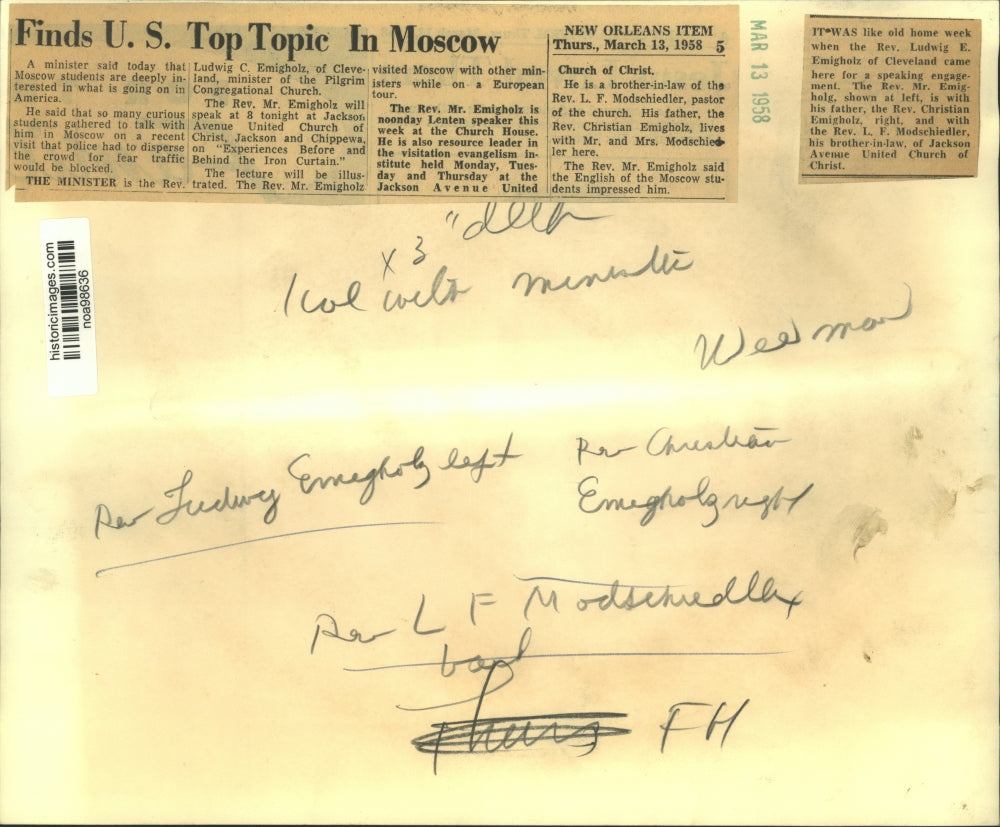 Finds U. S. Top Topic In Moscow
A minister said today that
Moscow students are deeply in-
terested in what is going on in
America.
He said that so many curious
students gathered to talk with
him in Moscow on a recent
visit that police had to disperse
the crowd for fear traffic
would be blocked.
THE MINISTER is the Rev.
Ludwig C. Emigholz, of Cleve-
land, minister of the Pilgrim
Congregational Church.
The Rev. Mr. Emigholz will
speak at 8 tonight at Jackson
Avenue United Church of
Christ, Jackson and Chippewa,
on "Experiences Before and
Behind the Iron Curtain."
The lecture will be illus-
trated. The Rev. Mr. Emigholz
visited Moscow with other min-
isters while on a European
tour.
The Rev. Mr. Emigholz is
noonday Lenten speaker this
week at the Church House.
He is also resource leader in
the visitation evangelism in-
stitute held Monday, Tues-
day and Thursday at the
Jackson Avenue United
NEW ORLEANS ITEM
Thurs., March 13, 1958 5
Church of Christ.
He is a brother-in-law of the
Rev. L. F. Modschiedler, pastor
of the church. His father, the
Rev. Christian Emigholz, lives
with Mr. and Mrs. Modschied-
ler here.
The Rev. Mr. Emigholz said
the English of the Moscow stu-
dents impressed him.
MAR 13 1958
IT WAS like old home week
when the Rev. Ludwig E.
Emigholz of Cleveland came
here for a speaking engage-
ment. The Rev. Mr. Emig-
holg, shown at left, is with
his father, the Rev. Christian
Emigholz, right, and with
the Rev. L. F. Modschiedler,
his brother-in-law, of Jackson
Avenue United Church of
Christ.
historicimages.com
noa98636
x 3 " deep
1 col with minister
Rev Ludwig Emegholz left
Rev Christian
Emegholz right
Rev L F Modschiedler
FH